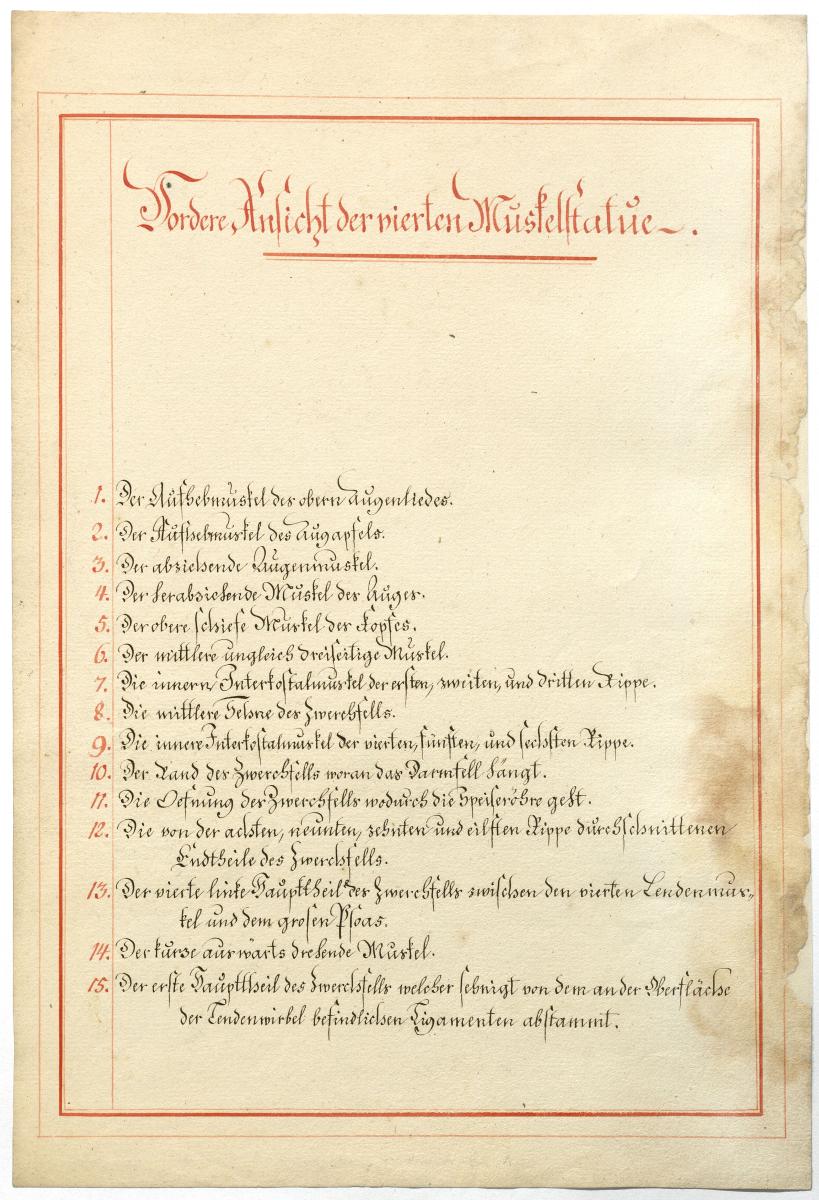 Vordere Ansicht der vierten Muskelstatue.
1. Der Aufhebmuskel des obern Augenliedes.
2. Der Aufhebmuskel des Augapfels.
3. Der abziehende Augenmuskel.
4. Der herabziehende Muskel des Auges.
5. Der obere schiefe Muskel des Kopfes.
6. Der mittlere ungleich dreiseitige Muskel.
7. Die innern Interkostalmuskel der ersten, zweiten, und dritten Rippe.
8. Die mittlere Sehne des Zwerchfells.
9. Die innere Interkostalmuskel der vierten, fünften, und sechsten Rippe.
10. Der Rand des Zwerchfells woran das Darmfell hängt.
11. Die Oefnung des Zwerchfells wodurch die Speiseröhre geht.
12. Die von der achten, neunten, zehnten und eilften Rippe durchschnittenen
Endtheile des Zwerchfells.
13. Der vierte linke Haupttheil des Zwerchfells zwischen den vierten Lendenmus-
kel und dem grosen Psoas.
14. Der kurze auswärts drehende Muskel.
15. Der erste Haupttheil des Zwerchfells welcher sehnigt von dem an der Oberfläche
der Lendenwirbel befindlichen Ligamenten abstammt.